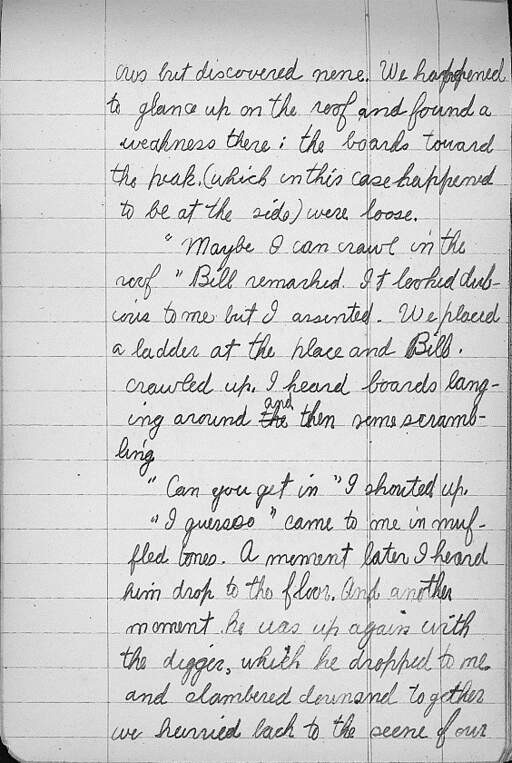 ows but discovered none. We happened
to glance up on the roof and found a
weakness there; the boards toward
the peak, (which in this case happened
to be at the side) were loose.
"Maybe I can crawl in the
roof" Bill remarked. It looked dub-
ious to me but I assented. We placed
a ladder at the place and Bill.
crawled up. I heard boards bang-
ing around and then some scramb-
ling
"Can you get in" I shouted up.
"I guess so" came to me in muf-
fled tones. A moment later I heard
him drop to the floor. And another
moment he was up again with
the digger, which he dropped to me.
and clambered down and together
we hurried back to the scene of our